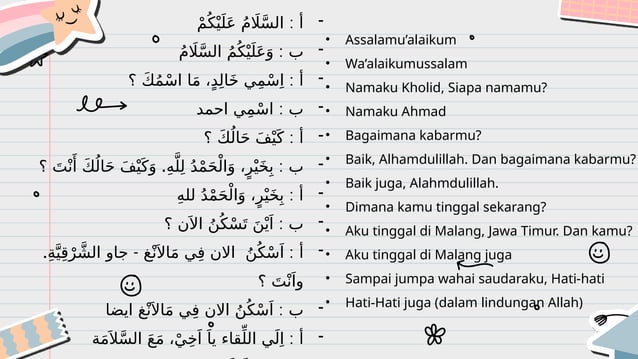 - أ : السَّلَامُ عَلَيْكُمْ
- ب : وَعَلَيْكُمُ السَّلَامُ
- أ : اِسْمِي خَالِدٍ, مَا اسْمُكَ ؟
- ب : اسْمِي احمد
- أ : كَيْفَ حَالُكَ ؟
- ب : بِخَيْرٍ, وَالْحَمْدُ لِلَّهِ. وَكَيْفَ حَالُكَ أَنْتَ ؟
- أ : بِخَيْرٍ, وَالْحَمْدُ للهِ
- ب : اَيْنَ تَسْكُنُ الاَن ؟
- أ : اَسْكُنُ الان فِي مَالاَنْغ - جاو الشَّرْقِيَّةِ.
واَنْتَ ؟
- ب : اَسْكُنُ الان فِي مَالاَنْغ ايضا
- أ : اِلَي اللِّقاء ياَ اَخِيْ, مَعَ السَّلاَمَة
• Assalamu’alaikum
• Wa’alaikumussalam
• Namaku Kholid, Siapa namamu?
• Namaku Ahmad
• Bagaimana kabarmu?
• Baik, Alhamdulillah. Dan bagaimana kabarmu?
• Baik juga, Alahmdulillah.
• Dimana kamu tinggal sekarang?
• Aku tinggal di Malang, Jawa Timur. Dan kamu?
• Aku tinggal di Malang juga
• Sampai jumpa wahai saudaraku, Hati-hati
• Hati-Hati juga (dalam lindungan Allah)